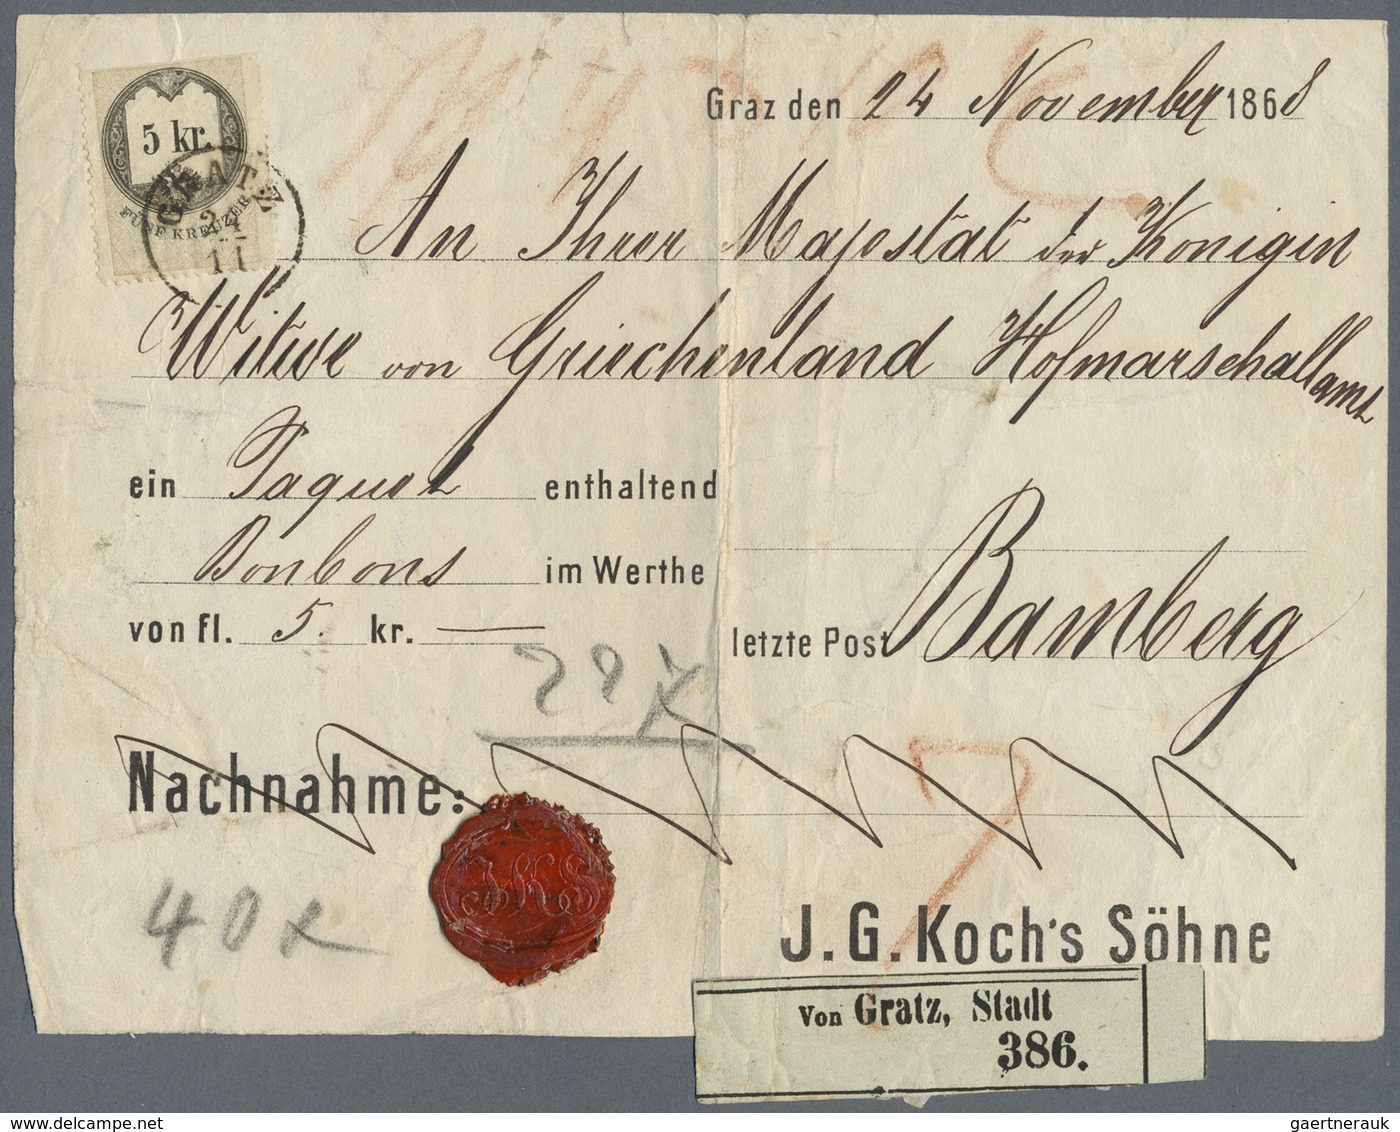 Graz den 24 November 1868
5 kr.
FÜNF KREUZER
GRATZ
24
11
An Ihrer Majestät der Königin
Witwe von Griechenland Hofmarschallamt
ein Paquet enthaltend
Bonbons im Werthe
von fl. 5. kr. —
letzte Post Bamberg
Nachnahme:
40 x
JKS
J. G. Koch's Söhne
Von Gratz, Stadt
386.
www.delcampe.net
gaertnerauk